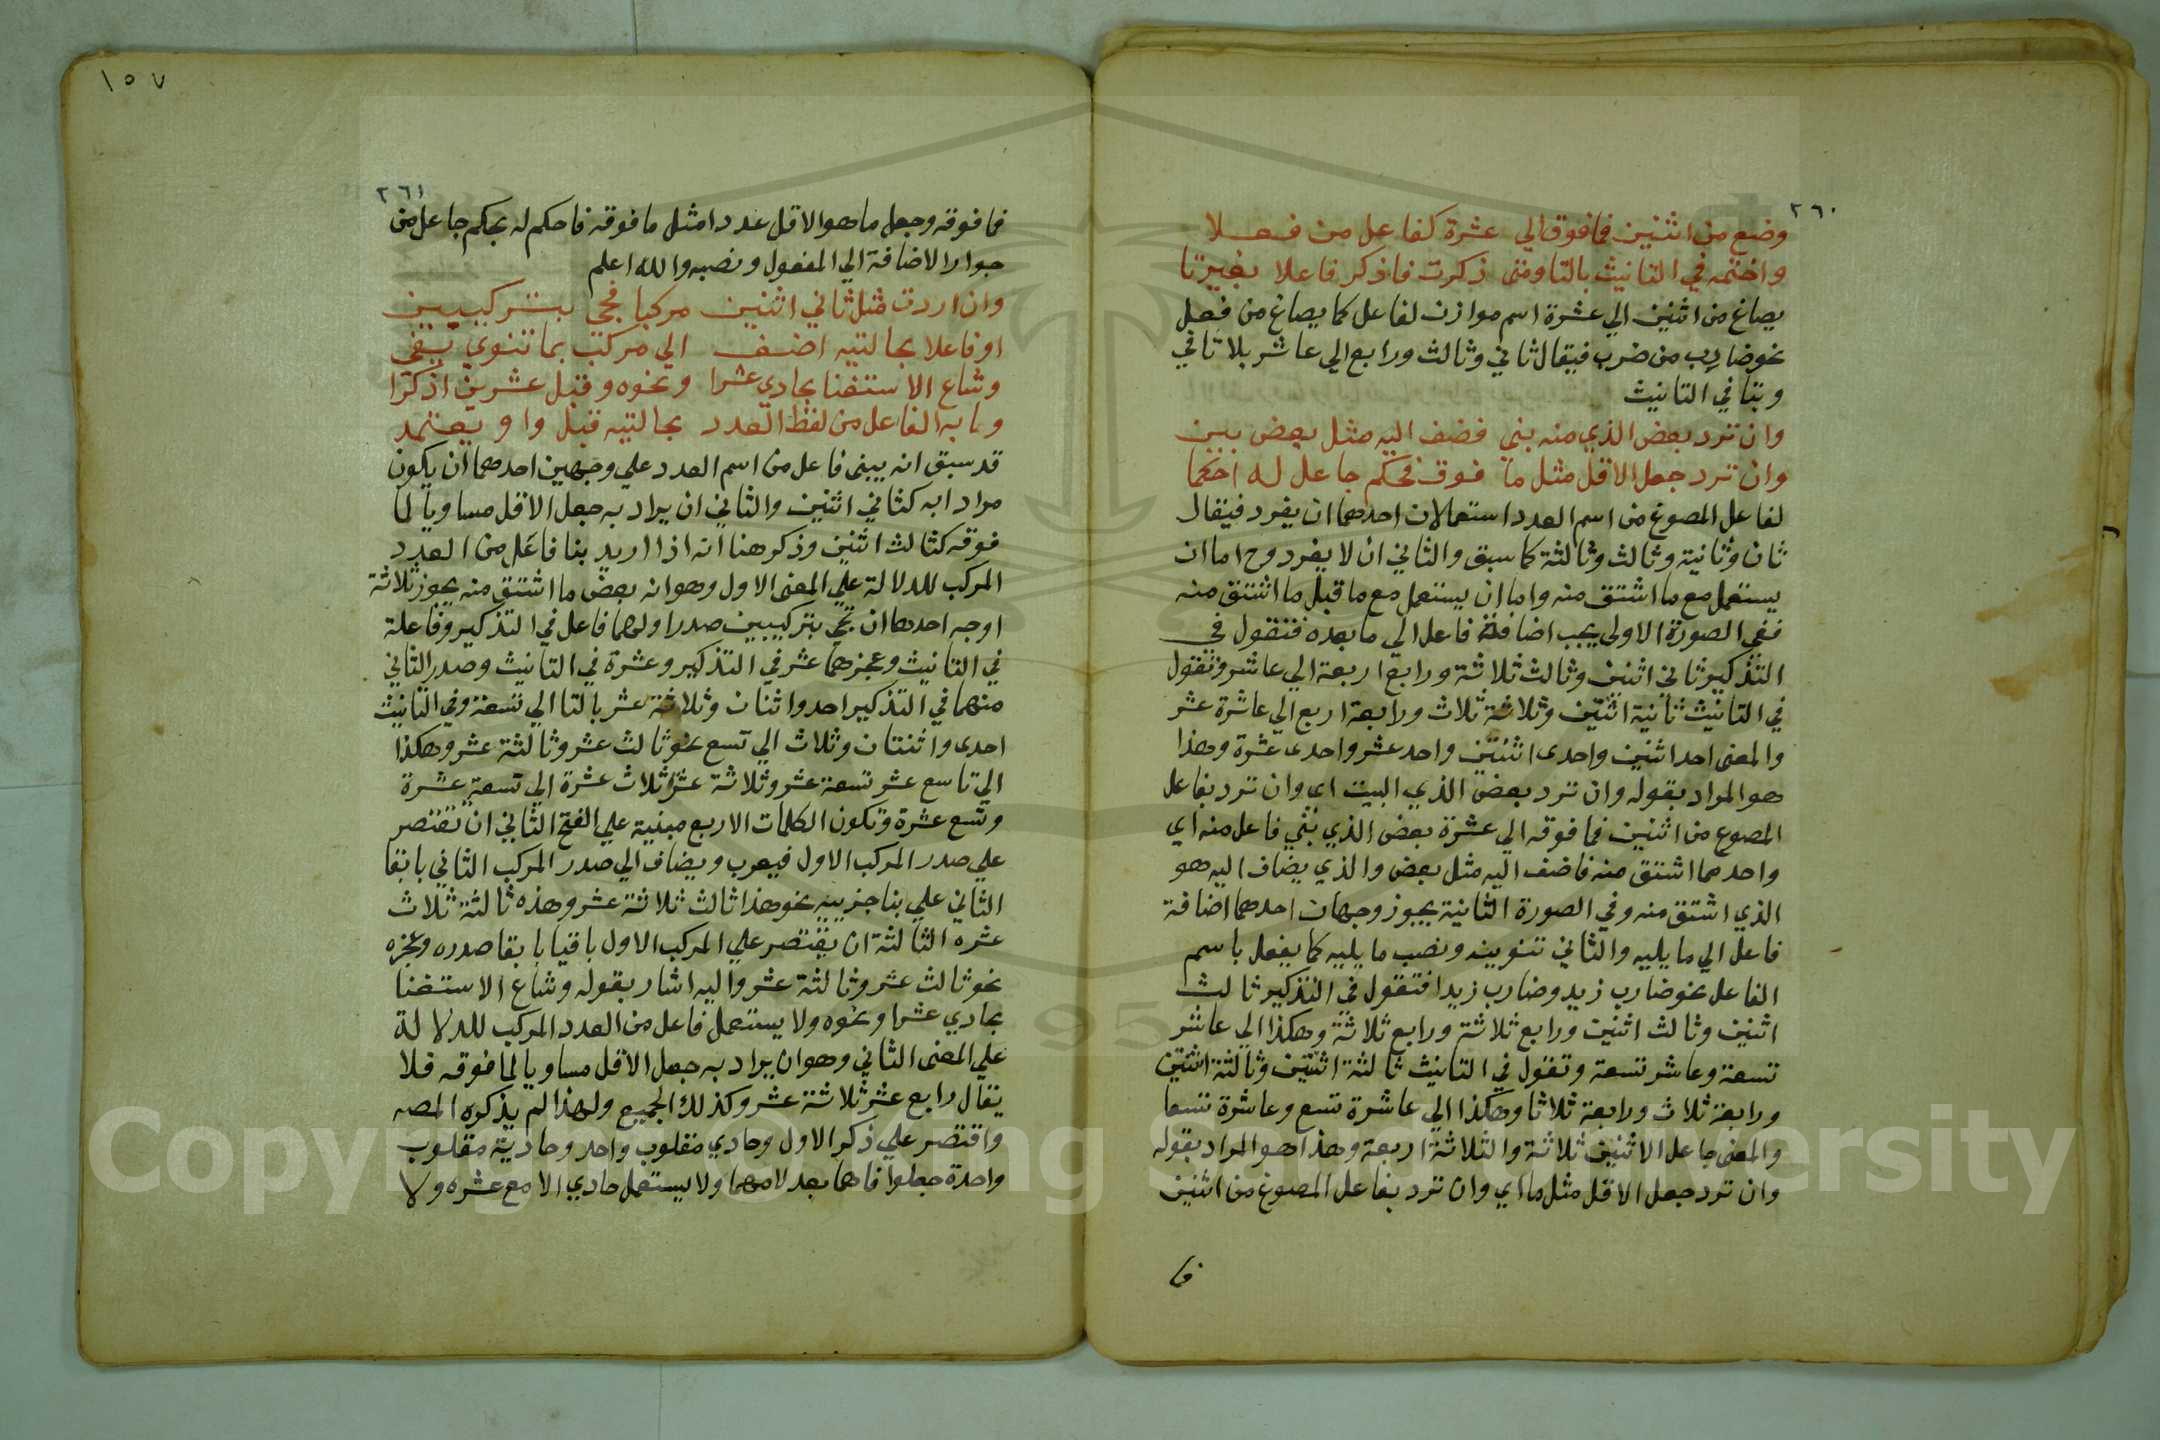 ٢٦٠
وضع من اثنين فما فوق الي عشرة كفاعل من فعلا
واختمه في التانيث بالتا ومتى ذكرت فاذكر فاعلا بغير تا
يصاغ من اثنين الي عشرة اسم موازن لفاعل كما يصاغ من فعل
نحو ضارب من ضرب فيقال ثاني وثالث ورابع الي عاشر بلا تا في
وبتا في التانيث
وان ترد بعض الذي منه بني فضف اليه مثل بعض بين
وان ترد جعل الاقل مثل ما فوق فحكم جاعل له احكما
لفاعل المصوغ من اسم العدد استعمالان احدهما ان يفرد فيقال
ثان وثانية وثالث وثالثة كما سبق والثاني ان لا يفرد وح اما ان
يستعمل مع ما اشتق منه واما ان يستعمل مع ما قبل ما اشتق منه
ففي الصورة الاولى يجب اضافة فاعل الي ما بعده فتقول في
التذكير ثاني اثنين وثالث ثلاثة ورابع اربعة الي عاشر وتقول
في التانيث ثانية اثنتين وثلاثة ثلاث ورابعة اربع الي عاشرة عشر
والمعنى احد اثنين واحدى اثنتين واحد عشر واحدى عشرة وهذا
هو المراد بقوله وان ترد بعض الذي البيت اي وان ترد بفاعل
المصوغ من اثنين فما فوقه الي عشرة بعض الذي بني فاعل منه اي
واحد مما اشتق منه فاضف اليه مثل بعض والذي يضاف اليه هو
الذي اشتق منه وفي الصورة الثانية يجوز وجهان احدهما اضافة
فاعل الي ما يليه والثاني تنوينه ونصب ما يليه كما يفعل باسم
الفاعل نحو ضارب زيد وضارب زيدا فتقول في التذكير ثالث
اثنين وثالث اثنين ورابع ثلاثة ورابع ثلاثة وهكذا الي عاشر
تسعة وعاشر تسعة وتقول في التانيث ثالثة اثنتين وثالثة اثنتين
ورابعة ثلاث ورابعة ثلاثا وهكذا الي عاشرة تسع وعاشرة تسعا
والمعنى جاعل الاثنين ثلاثة والثلاثة اربعة وهذا هو المراد بقوله
وان ترد جعل الاقل مثل ما اي وان ترد بفاعل المصوغ من اثنين
فما
١٥٧
٢٦١
فما فوقه وجعل ما هو الاقل عددا مثل ما فوقه فاحكم له بحكم جاعل من
جواز الاضافة الي المفعول ونصبه والله اعلم
وان اردت مثل ثاني اثنين مركبا فجئ بتركيبين
او فاعلا بحالتيه اضف الي مركب بما تنوي يفي
وشاع الاستغنا بحادي عشرا ونحوه وقبل عشرين اذكرا
وبابه الفاعل من لفظ العدد بحالتيه قبل واو يعتمد
قد سبق انه يبنى فاعل من اسم العدد علي وجهين احدهما ان يكون
مرادا به كثاني اثنين والثاني ان يراد به جعل الاقل مساويا لما
فوقه كثالث اثنين وذكر هنا انه اذا اريد بنا فاعل من العدد
المركب للدلالة علي المعنى الاول وهو انه بعض ما اشتق منه يجوز ثلاثة
اوجه احدها ان تجي بتركيبين صدر اولهما فاعل في التذكير وفاعلة
في التانيث وعجزهما عشر في التذكير وعشرة في التانيث وصدر الثاني
منهما في التذكير احد واثنان وثلاثة عشر بالتا الي تسعة وفي التانيث
احدى واثنتان وثلاث الي تسع نحو ثالث عشر وثالثة عشر وهكذا
الي تاسع عشر تسعة عشر وثلاثة عشر ثلاث عشرة الي تسعة عشرة
وتسع عشرة وتكون الكلمات الاربع مبنية علي الفتح الثاني ان تقتصر
علي صدر المركب الاول فيعرب ويضاف الي صدر المركب الثاني بابقا
الثاني علي بنا جزييه نحو هذا ثالث ثلاثة عشر وهذه ثالثة ثلاث
عشره الثالثة ان يقتصر علي المركب الاول باقيا بابقا صدره وعجزه
نحو ثالث عشر وثالثة عشر واليه اشار بقوله وشاع الاستغنا
بحادي عشرا ونحوه ولا يستعمل فاعل من العدد المركب للدلالة
علي المعنى الثاني وهو ان يراد به جعل الاقل مساويا لما فوقه فلا
يقال رابع عشر ثلاثة عشر وكذلك الجميع ولهذا لم يذكره المصه
واقتصر علي ذكر الاول وحادي مقلوب واحد وحادية مقلوب
واحدة جعلوا فاهما بعد لامهما ولا يستعمل حادي الا مع عشره ولا
Copyright © King Saud University